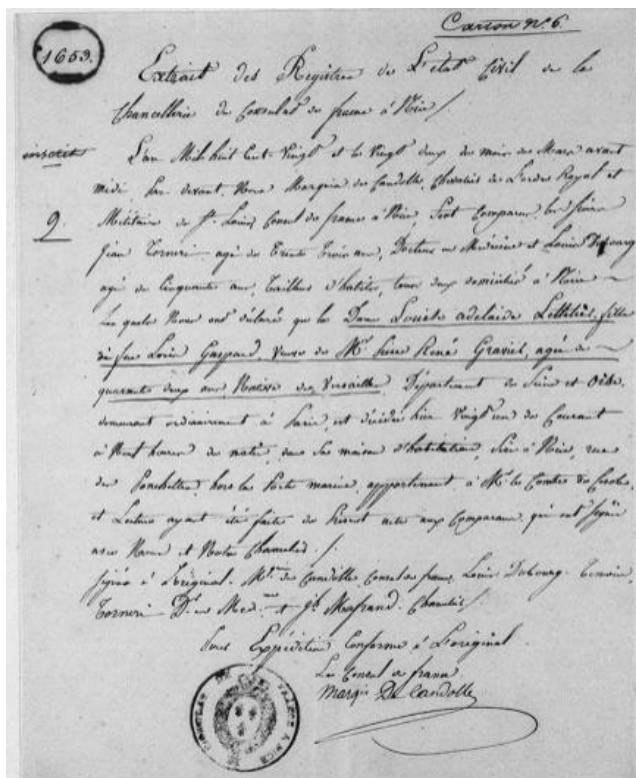 Carton N.º 6.
1653.
Extrait des Registres de L'etat Civil de la
Chancellerie du Consulat de france à Nice /.
inscrit
L'an Mil huit Cent Vingt et le Vingt deux du mois de Mars avant
midi Par devant Nous Marquis de Candolle, Chevalier de L'ordre Royal et
9.
Militaire de St. Louis, Consul de france à Nice, Sont Comparus les sieurs
Jean Torneri agé de Trente Trois ans, Docteur en Médecine et Louis Dubourg
agé de Cinquante ans, Tailleur d'habits, tous deux domiciliés à Nice
Les quels Nous ont déclaré que la Dame Louise adelaide fille
de feu Louis Gaspard, Veuve de Mr. Pierre René Graviet, agée de
quarante deux ans Native de Versailles, Département de Seine et Oise,
demeurant ordinairement à Paris, est décédée hier Vingt un du Courant
à heures du matin, dans sa maison d'habitation, Sise à Nice, rue
des Ponchettes hors la Porte marine, appartenant à Mr. le Comte de
et Lecture ayant été faite du Présent acte aux Comparans, qui ont signé
avec Nous et Notre Chancelier /.
Signé à L'original. Mis. de Candolle Consul de france, Louis Dubourg Temoin
Torneri Dr. en Med.ne et Jh. Chancelier /.
Pour Expédition Conforme à L'original
Le Consul de france
Marquis De Candolle
CONSULAT DE FRANCE A NICE